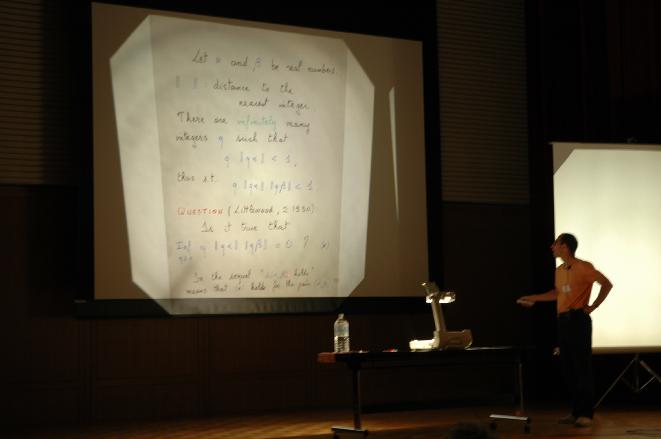 Let α and β be real numbers.
‖ ‖ : distance to the
nearest integer.
There are infinitely many
integers q such that
q ‖qα‖ < 1,
thus s.t. q ‖qα‖ ‖qβ‖ < 1.
QUESTION (Littlewood, ≥ 1930)
Is it true that
Inf q ‖qα‖ ‖qβ‖ = 0 ?
In the sequel holds"
means that holds for the pair